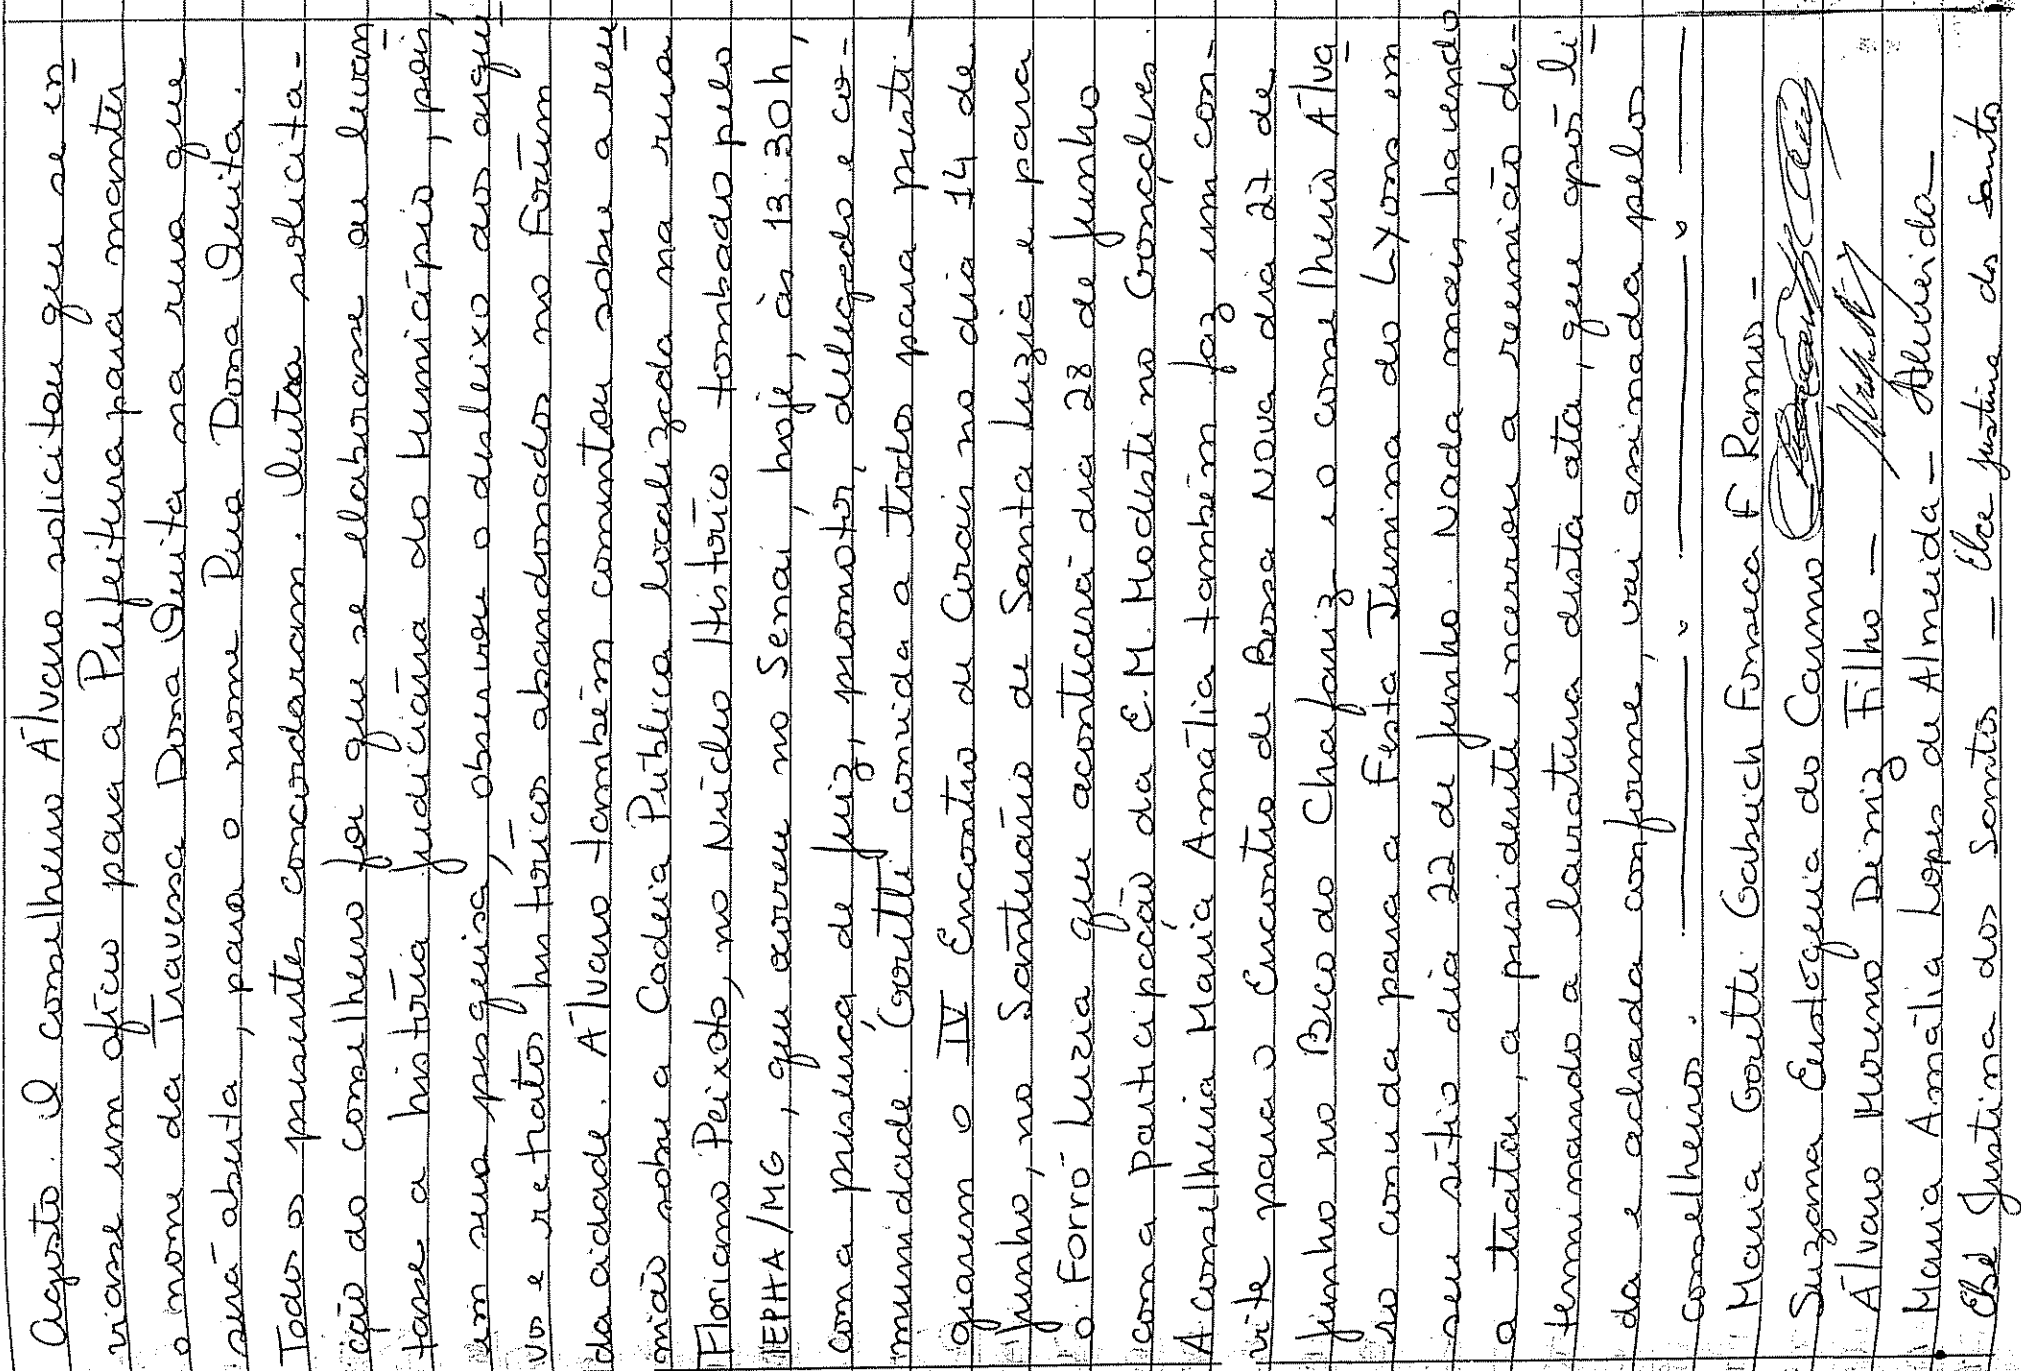 Agosto. O conselheiro Álvaro solicitou que se en-
viasse um ofício para a Prefeitura para manter
o nome da Travessa Dona Quita na rua que
será aberta, para o nome Rua Dona Quita.
Todos os presentes concordaram. Outra solicita-
ção do conselheiro foi que se elaborasse ou levan-
tasse a história judiciária do Município, pois,
em sua pesquisa, observou o desleixo dos arqui-
vos e retratos históricos abandonados no Fórum
da cidade. Álvaro também comentou sobre a reu-
nião sobre a Cadeia Pública localizada na rua
Floriano Peixoto, no Núcleo Histórico tombado pelo
IEPHA/MG, que ocorreu no Senai, hoje, às 13:30h,
com a presença de juiz, promotor, delegado e co-
munidade. Goretti convida a todos para presti-
giarem o IV Encontro de Corais no dia 14 de
junho, no Santuário de Santa Luzia e para
o Forró Luzia que acontecerá dia 28 de junho
com a participação da E.M. Modestino Gonçalves.
A conselheira Maria Amália também faz um con-
vite para o Encontro de Bossa Nova dia 27 de
junho no Beco do Chafariz e o conselheiro Álva-
ro convida para a Festa Junina do Lyons em
seu sítio dia 22 de junho. Nada mais havendo
a tratar, a presidente encerrou a reunião de-
terminando a lavratura desta ata, que após li-
da e achada conforme, vai assinada pelos
conselheiros.
Maria Goretti Gabrich Fonseca F. Ramos -
Suzana Eustáquia do Carmo
Álvaro Moreno Diniz Filho -
Maria Amália Lopes de Almeida - Almeida
Elce Justina dos Santos - Elce Justina dos Santos